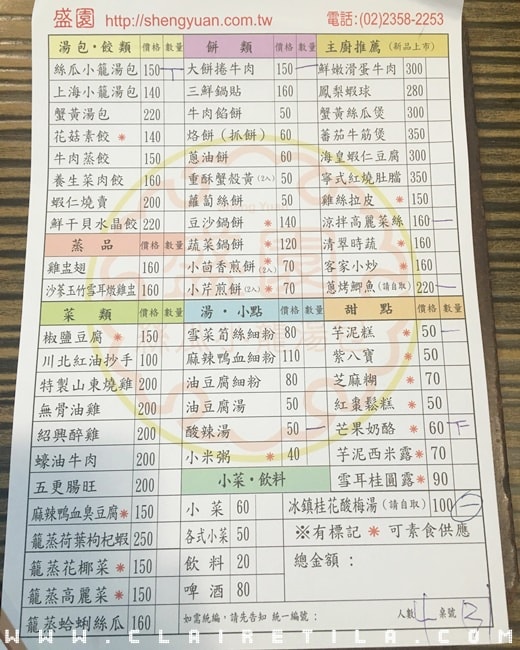 盛園 http://shengyuan.com.tw 電話:(02)2358-2253
湯包·餃類 價格 數量
絲瓜小籠湯包 150
上海小籠湯包 140
蟹黃湯包 220
花菇素餃 * 140
牛肉蒸餃 150
養生菜肉餃 160
蝦仁燒賣 200
鮮干貝水晶餃 220
蒸品 價格 數量
雞盅翅 160
沙蔘玉竹雪耳燉雞盅 160
菜類 價格 數量
椒鹽豆腐 * 150
川北紅油抄手 100
特製山東燒雞 200
無骨油雞 200
紹興醉雞 200
蠔油牛肉 200
五更腸旺 200
麻辣鴨血臭豆腐 * 150
籠蒸荷葉枸杞蝦 250
籠蒸花椰菜 * 150
籠蒸高麗菜 * 150
籠蒸蛤蜊絲瓜 160
餅類 價格 數量
大餅捲牛肉 150
三鮮鍋貼 160
牛肉餡餅 50
烙餅(抓餅) 60
蔥油餅 60
重酥蟹殼黃(2入) 50
蘿蔔絲餅 50
豆沙鍋餅 * 140
蔬菜鍋餅 * 120
小茴香煎餅(2入) * 70
小芹煎餅(2入) * 70
湯·小點 價格 數量
雪菜筍絲細粉 80
麻辣鴨血細粉 110
油豆腐細粉 80
油豆腐湯 50
酸辣湯 50
小米粥 * 40
小菜·飲料
小菜 60
各式小菜 50
飲料 20
啤酒 80
主廚推薦(新品上市)
鮮嫩滑蛋牛肉 300
鳳梨蝦球 280
蟹黃絲瓜煲 300
蕃茄牛筋煲 350
海皇蝦仁豆腐 300
寧式紅燒肚膛 350
雞絲拉皮 * 150
涼拌高麗菜絲 160
清翠時蔬 * 160
客家小炒 * 160
蔥烤鯽魚(請自取) 220
甜點 價格 數量
芋泥糕 * 50
紫八寶 * 50
芝麻糊 * 70
紅棗鬆糕 * 50
芒果奶酪 * 60
芋泥西米露 * 70
雪耳桂圓露 * 90
冰鎮桂花酸梅湯(請自取) 100
※有標記 * 可素食供應
總金額:
如需統編,請先告知 統一編號: 人數 4 桌號 B
WWW.CLAIRETILA.COM